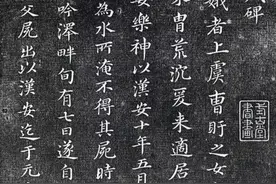 碑
娥者上虞曺盱之女
末胄荒沉爰来適居
安樂神以漢安十年五月
為水所淹不得其屍時
吟澤畔旬有七日遂自
父屍出以漢安迄于元